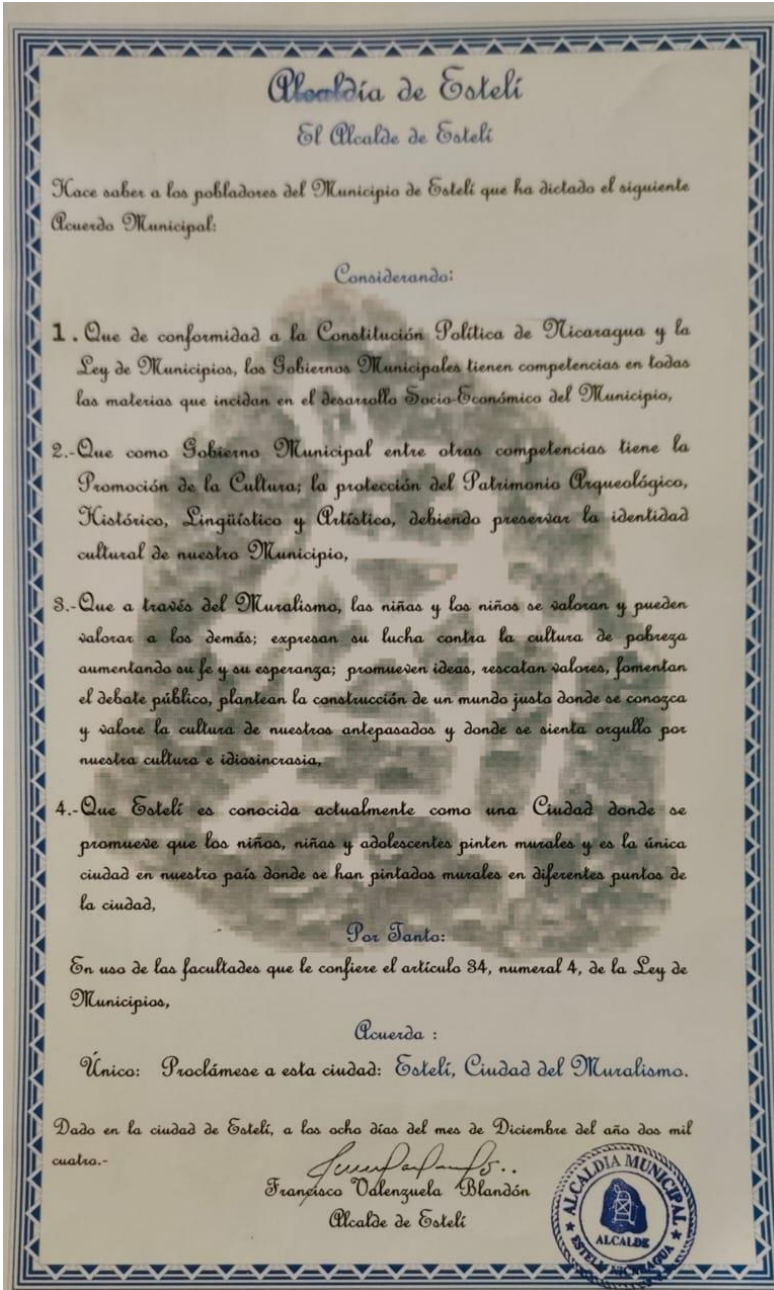 Alcaldía de Estelí
El Alcalde de Estelí
Hace saber a los pobladores del Municipio de Estelí que ha dictado el siguiente
Acuerdo Municipal:
Considerando:
1. Que de conformidad a la Constitución Política de Nicaragua y la
Ley de Municipios, los Gobiernos Municipales tienen competencias en todas
las materias que incidan en el desarrollo Socio-Económico del Municipio,
2.-Que como Gobierno Municipal entre otras competencias tiene la
Promoción de la Cultura; la protección del Patrimonio Arqueológico,
Histórico, Lingüístico y Artístico, debiendo preservar la identidad
cultural de nuestro Municipio,
3.-Que a través del Muralismo, las niñas y los niños se valoran y pueden
valorar a los demás; expresan su lucha contra la cultura de pobreza
aumentando su fe y su esperanza; promueven ideas, rescatan valores, fomentan
el debate público, plantean la construcción de un mundo justo donde se conozca
y valore la cultura de nuestros antepasados y donde se sienta orgullo por
nuestra cultura e idiosincrasia,
4.-Que Estelí es conocida actualmente como una Ciudad donde se
promueve que los niños, niñas y adolescentes pinten murales y es la única
ciudad en nuestro país donde se han pintados murales en diferentes puntos de
la ciudad,
Por Tanto:
En uso de las facultades que le confiere el artículo 34, numeral 4, de la Ley de
Municipios,
Acuerda :
Único: Proclámese a esta ciudad: Estelí, Ciudad del Muralismo.
Dado en la ciudad de Estelí, a los ocho días del mes de Diciembre del año dos mil
cuatro.-
Francisco Valenzuela Blandón
Alcalde de Estelí
ALCALDIA MUNICIPAL
ALCALDE
ESTELI NICARAGUA